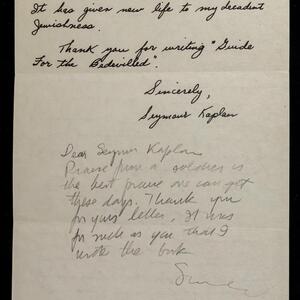 It has given new life to my decadent
Jewishness.
Thank you for writing "Guide
For the Bedevilled".
Sincerely,
Seymour Kaplan
Dear Seymour Kaplan
Praise from a soldier is
the best praise one can get
these days. Thank you
for your letter. It was
for such as you that I
wrote the book